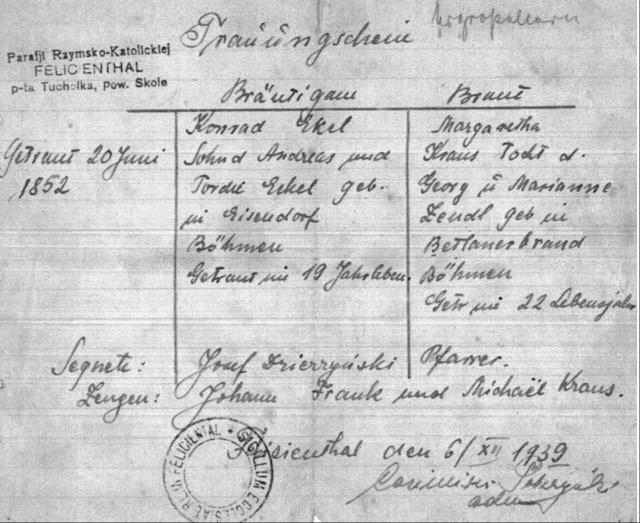 Trauungschein
Parafji Rzymsko-Katolickiej
FELICIENTHAL
p-ta Tucholka, pow. Skole
Bräutigam Braut
Getraut 20 Juni
1852
Konrad Ekel
Sohn d Andreas und
Eckel geb.
in Eisendorf
Böhmen
Getraut im 19 Jahrleben.
Margaretha
Kraus Tocht d.
Georg u Marianne
Zendl geb in
Betlanerbrand
Böhmen
Getr im 22 Lebensjahr
Segnete: Josef Dzierzyński Pfarrer.
Zeugen: Johann Frank und Michaël Kraus.
Felizienthal den 6/XII 1939
SIGILLUM ECCLESIAE FELICIENTAL